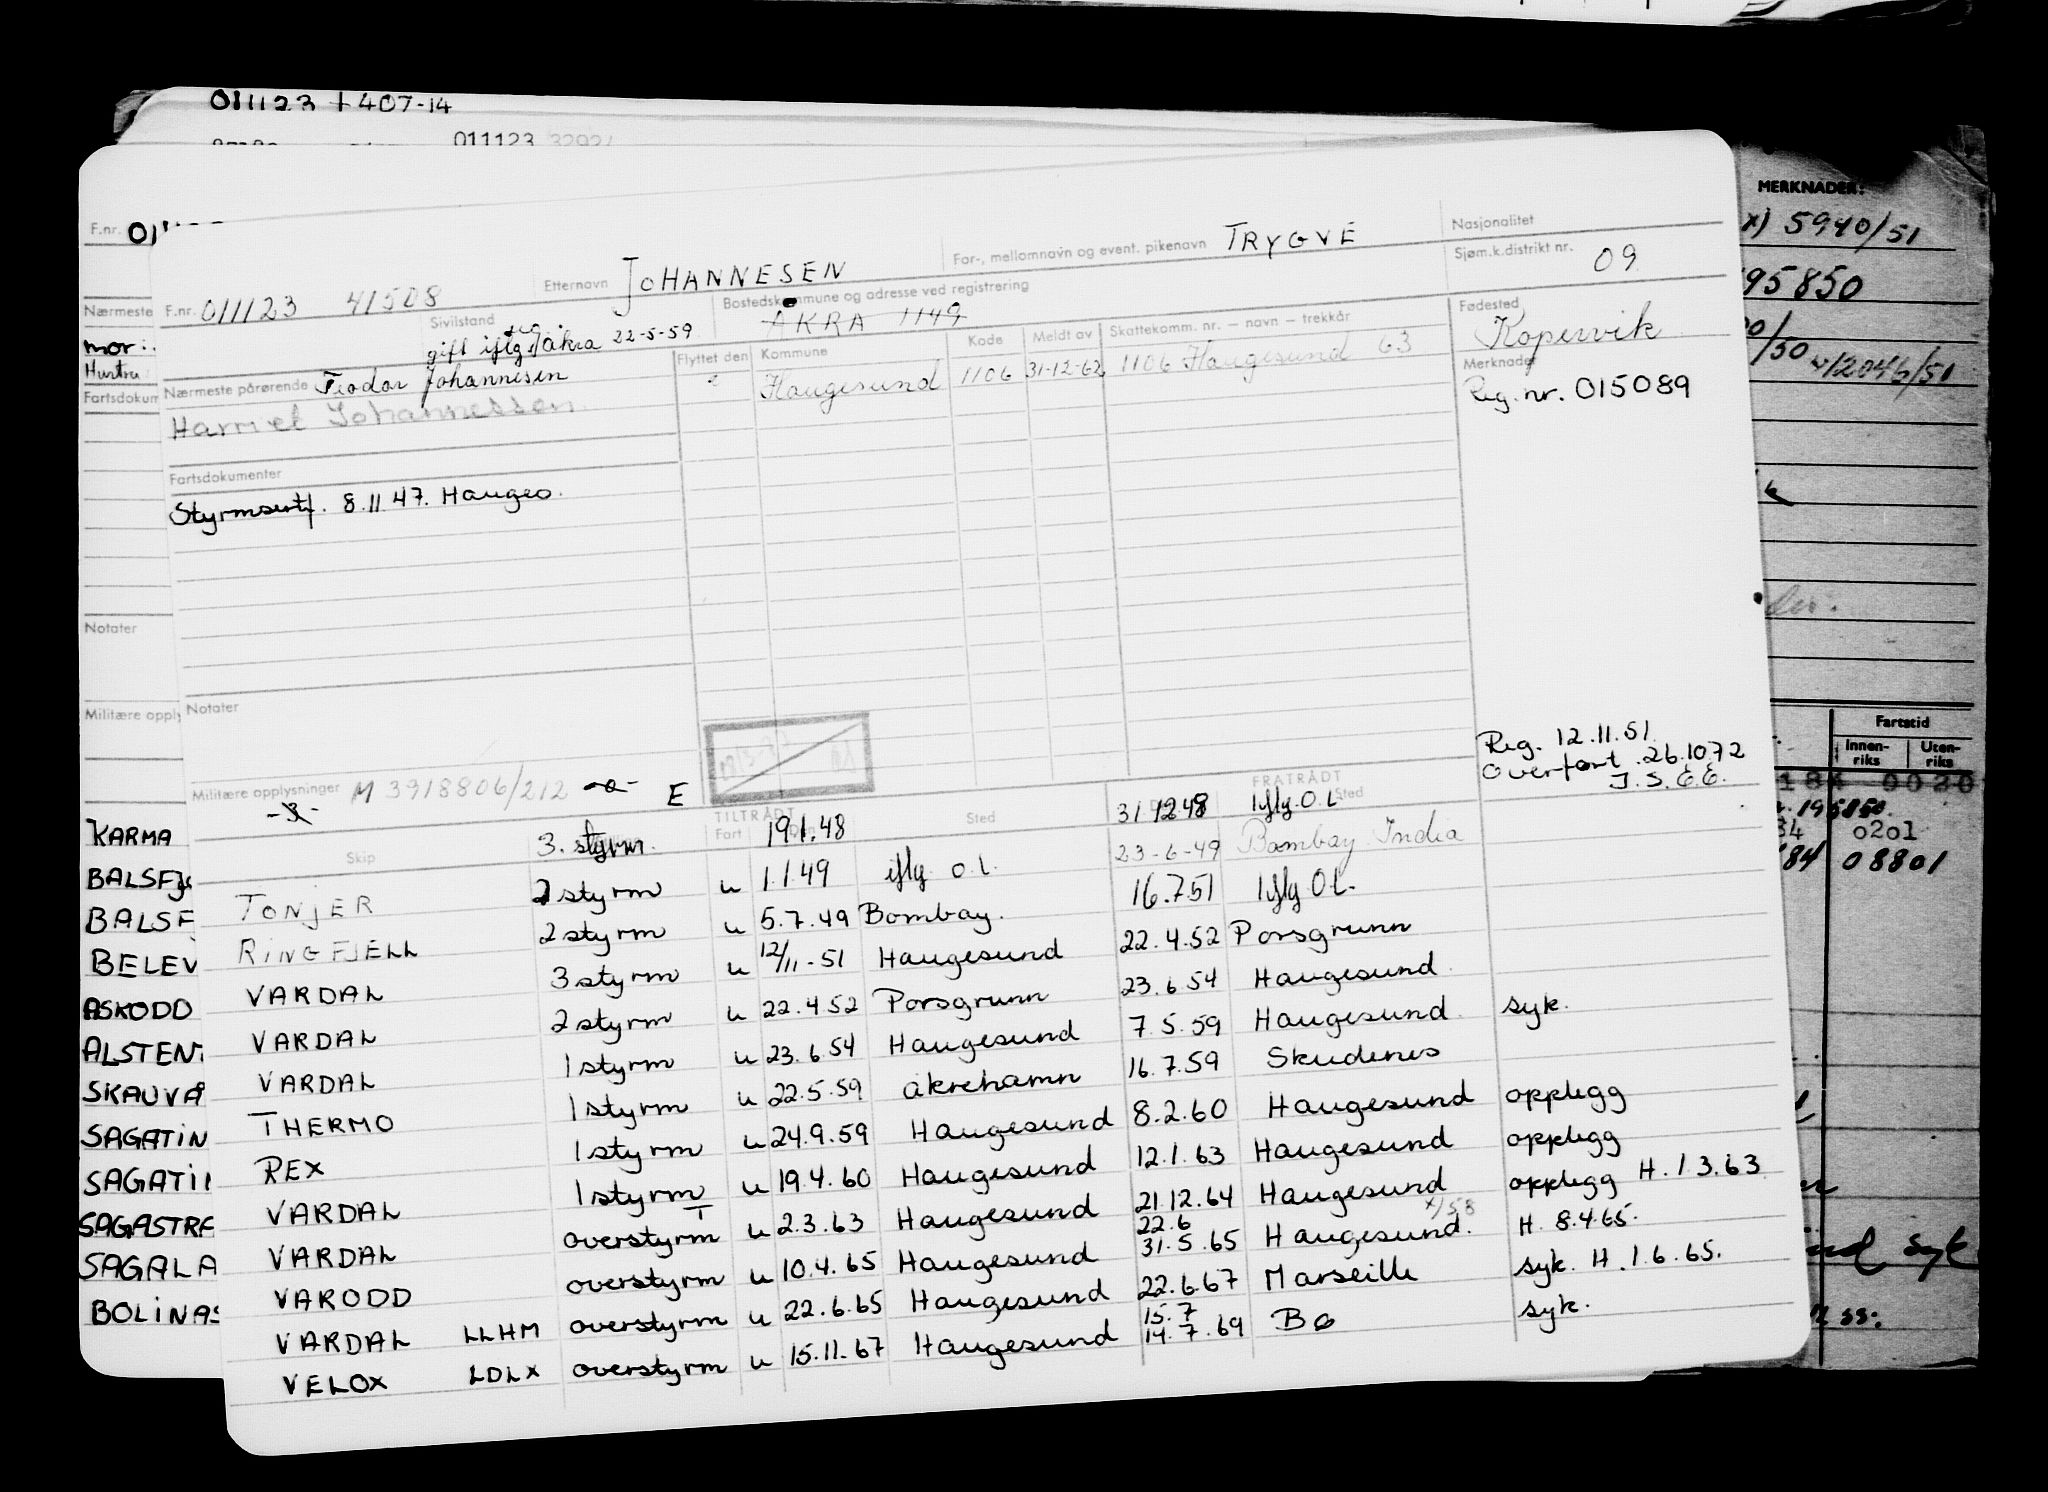 011123 + 407-14
011123 3292
F.nr. 011123 41508 Etternavn JOHANNESEN For-, mellomnavn og event. pikenavn TRYGVE Nasjonalitet
Sjøm.k.distrikt nr. 09
Sivilstand gift iflg. Åkra 22-5-59 Bostedskommune og adresse ved registrering ÅKRA 1149 Fødested Kopervik
Nærmeste pårørende Teodor Johannesen
Harriet Johannessen
Flyttet den Kommune Kode Meldt av Skattekomm. nr. – navn – trekkår
Haugesund 1106 31-12-62 1106 Haugesund 63
Merknader
Reg. nr. 015089
Fartsdokumenter
Styrmsertf. 8.11 47. Hauges.
Notater
Reg. 12.11.51.
Overført 26.10.72
J.S.E.E.
Militære opplysninger M 3918806/212 E
Skip Stilling TILTRÅDT Fart Den Sted FRATRÅDT Sted
TONJER 3. styrm. 19.1.48 31.12.48 iflg. O.L.
RINGFJELL 2 styrm u 1.1.49 iflg O.L. 23-6-49 Bombay India
VARDAL 2 styrm u 5.7.49 Bombay. 16.7.51 iflg O.L.
VARDAL 3 styrm u 12/11-51 Haugesund 22.4.52 Porsgrunn
VARDAL 2 styrm u 22.4.52 Porsgrunn 23.6.54 Haugesund
THERMO 1 styrm u 23.6.54 Haugesund 7.5.59 Haugesund syk.
REX 1 styrm u 22.5.59 Åkrehamn 16.7.59 Skudenes
VARDAL 1 styrm u 24.9.59 Haugesund 8.2.60 Haugesund opplegg
VARDAL 1 styrm u 19.4.60 Haugesund 12.1.63 Haugesund opplegg
VARODD overstyrm u 2.3.63 Haugesund 21.12.64 Haugesund opplegg H. 1 3.63
overstyrm u 10.4.65 Haugesund 22.6 31.5.65 Haugesund. x/58 H. 8.4.65.
VARDAL LLHM overstyrm u 22.6.65 Haugesund 22.6.67 Marseille syk. H. 1.6.65.
VELOX LDLX overstyrm u 15.11.67 Haugesund 15.7 14.7.69 Bø syk.
F.nr.
Nærmeste
mor
Hustru
Fartsdokum
Notater
Militære oppl
KARMA
BALSFJ
BALSF
BELEV
ASKODD
ALSTEN
SKAUVÅ
SAGATIN
SAGATI
SAGASTRE
SAGALA
BOLINAS
MERKNADER:
x) 5940/51
95850
/50 12046/51
Fartstid
Innen-riks Uten-riks
0201
08801
syk